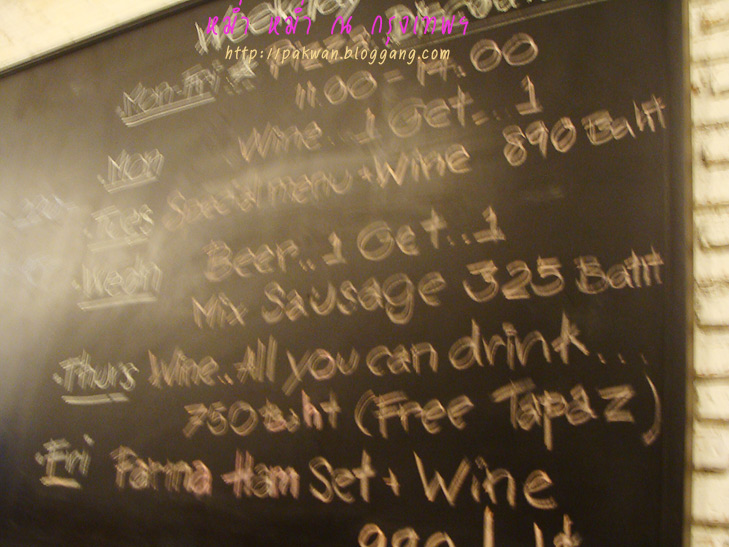 หม่ำ หม่ำ ณ กรุงเทพฯ
http://pakwan.bloggang.com
Weekday Discount
Mon-Fri
11.00 - 14.00
Mon Wine..1 Get...1
Tues Special menu + Wine 890 Baht
Beer..1 Get..1
Mix Sausage 325 Baht
Thurs Wine..All you can drink...
750 Baht (Free Tapaz)
Fri Parma Ham Set + Wine